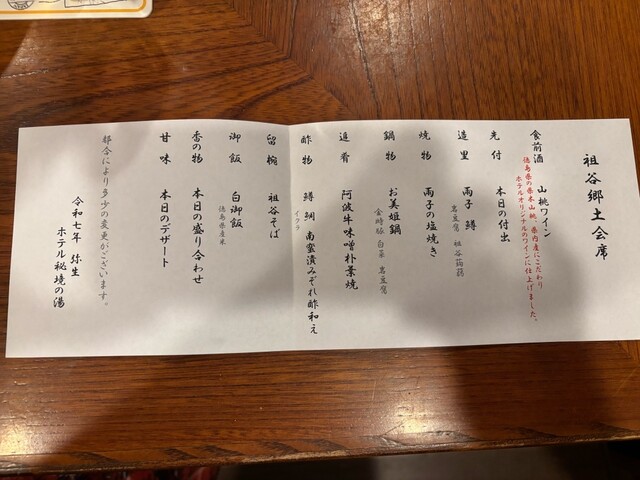 祖谷郷土会席
食前酒 山桃ワイン
徳島県の県木山桃、県内産にこだわり
ホテルオリジナルのワインに仕上げました。
先付 本日の付出
造里 雨子 鱒
岩豆腐 祖谷蒟蒻
焼物 雨子の塩焼き
鍋物 お美姫鍋
金時豚 白菜 岩豆腐
進肴 阿波牛味噌朴葉焼
酢物 鱒 南蛮漬みぞれ酢和え
イクラ
留椀 祖谷そば
御飯 白御飯
徳島県産米
香の物 本日の盛り合わせ
甘味 本日のデザート
都合により多少の変更がございます。
令和七年 弥生
ホテル秘境の湯